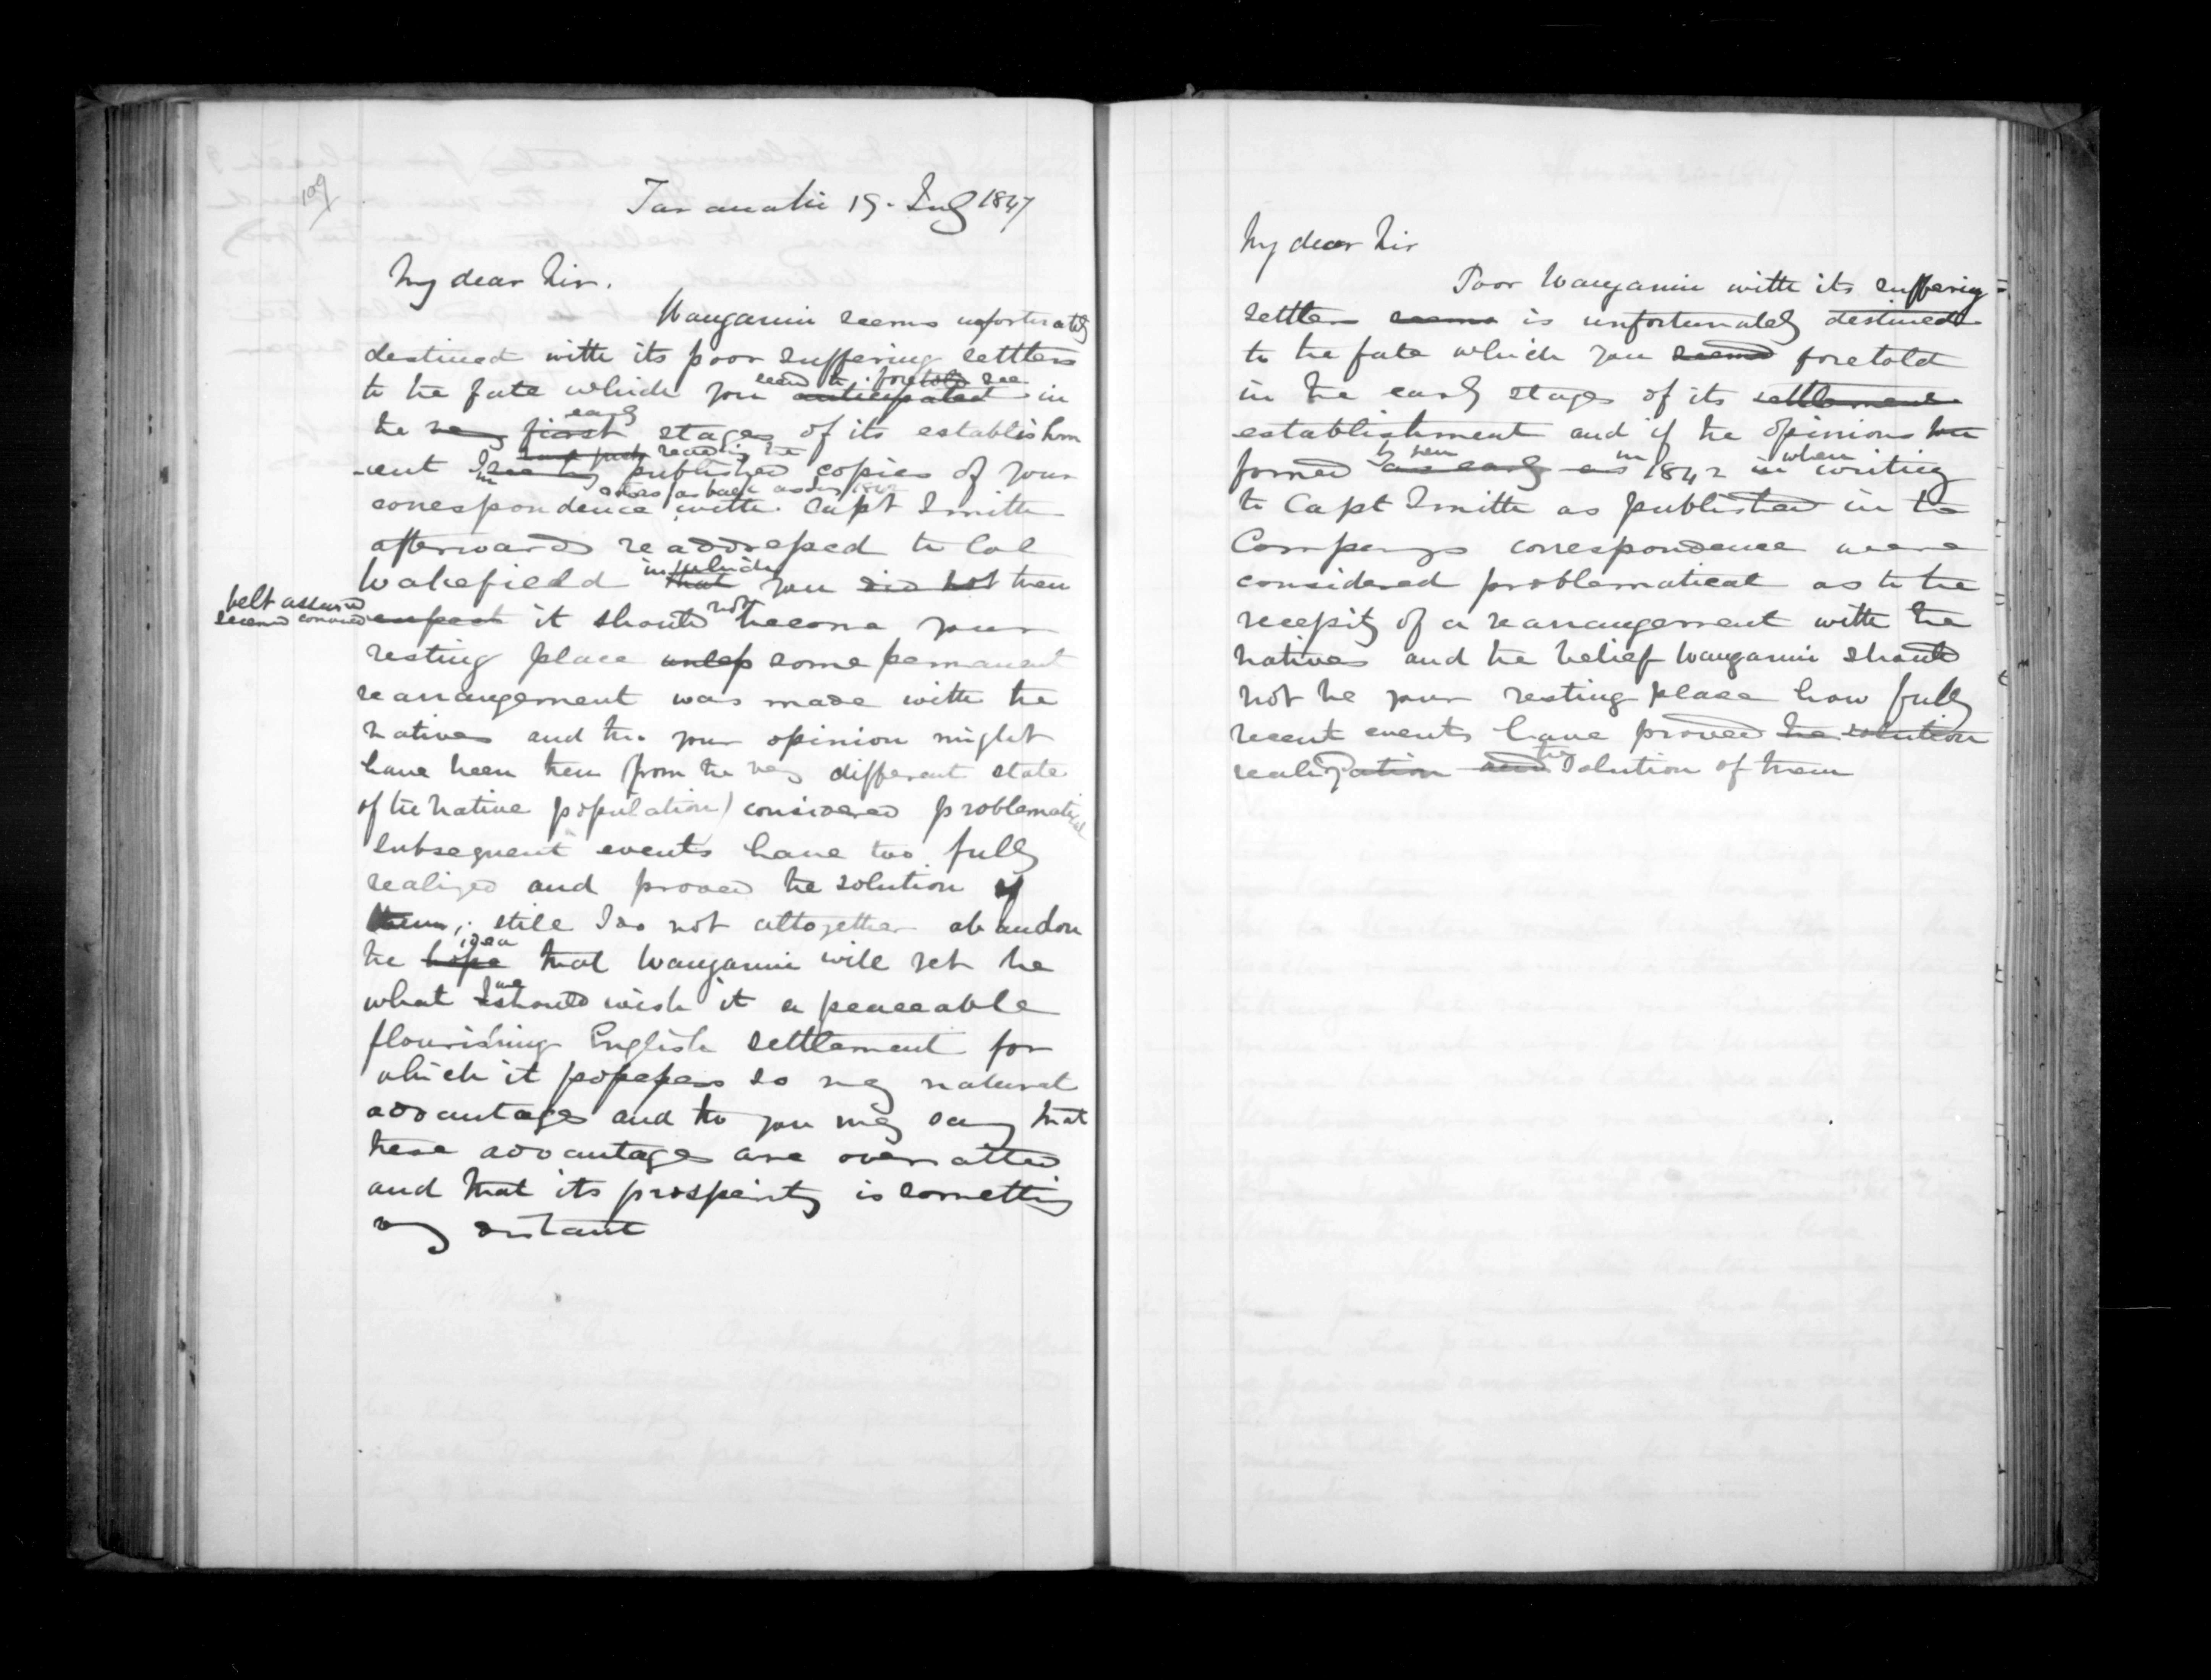 109
Taranaki 19. July 1847
My dear Sir.
Wanganui seems unfortunately
destined with its poor suffering settlers
seem to foretold see
to the fate which you anticipated in
early
the very first stages of its establishm
reading the
-ent I see by published copies of your
in as far back as
correspondence with Capt Smith
afterwards readdressed to Col
in which
Wakefield that you did not then
felt assured
seemed convinced expect it should not become your
resting place unless some permanent
rearrangement was made with the
natives and tho your opinion might
have been then (from the very different state
of the native population) considered problematical
subsequent events have too fully
realized and proved the solution of
them; still I do not altogether abandon
idea
the hope that Wanganui will yet be
we
what I should wish it a peaceable
flourishing English settlement for
which it possesses so many natural
advantages and tho you may say that
these advantages are overratted
and that its prosperity is something
very distant
My dear Sir
Poor Wanganui with its suffering
settlers seems is unfortunately destined
to the fate which you seemed foretold
in the early stages of its settlement
establishment and if the opinions then
by you in when
formed as early as 1842 in writing
to Capt Smith as published in the
Companys correspondence were
considered problematical as to the
necessity of a rearrangement with the
natives and the belief Wanganui should
not be your resting place how fully
recent events have proved the solution
the
realization and solution of them